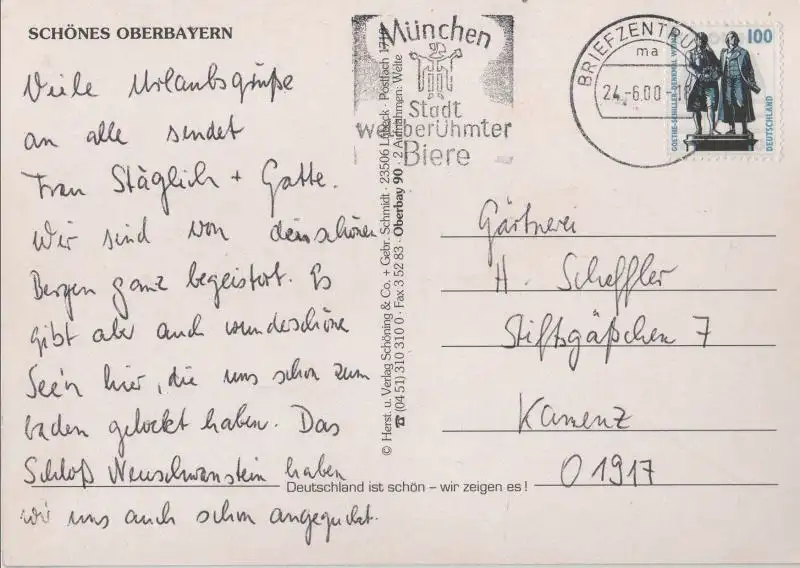 SCHÖNES OBERBAYERN
Viele Urlaubsgrüße
an alle sendet
Frau Stäglich + Gatte.
Wir sind von den schönen
Bergen ganz begeistert. Es
gibt aber auch wunderschöne
See'n hier, die uns schon zum
baden gelockt haben. Das
Schloß Neuschwanstein haben
wir uns auch schon angeguckt.
© Herst. u. Verlag Schöning & Co. + Gebr. Schmidt · 23506 Lübeck · Postfach 1719
☎ (04 51) 310 310 0 · Fax 3 52 83 · Oberbay 90 · 2 Aufnahmen: Welte
Deutschland ist schön – wir zeigen es!
München
Stadt
weltberühmter
Biere
BRIEFZENTRU
ma
24.-6.00
100
DEUTSCHLAND
GOETHE-SCHILLER-DENKMAL
Gärtnerei
H. Scheffler
Stiftsgäßchen 7
Kamenz
O 1917